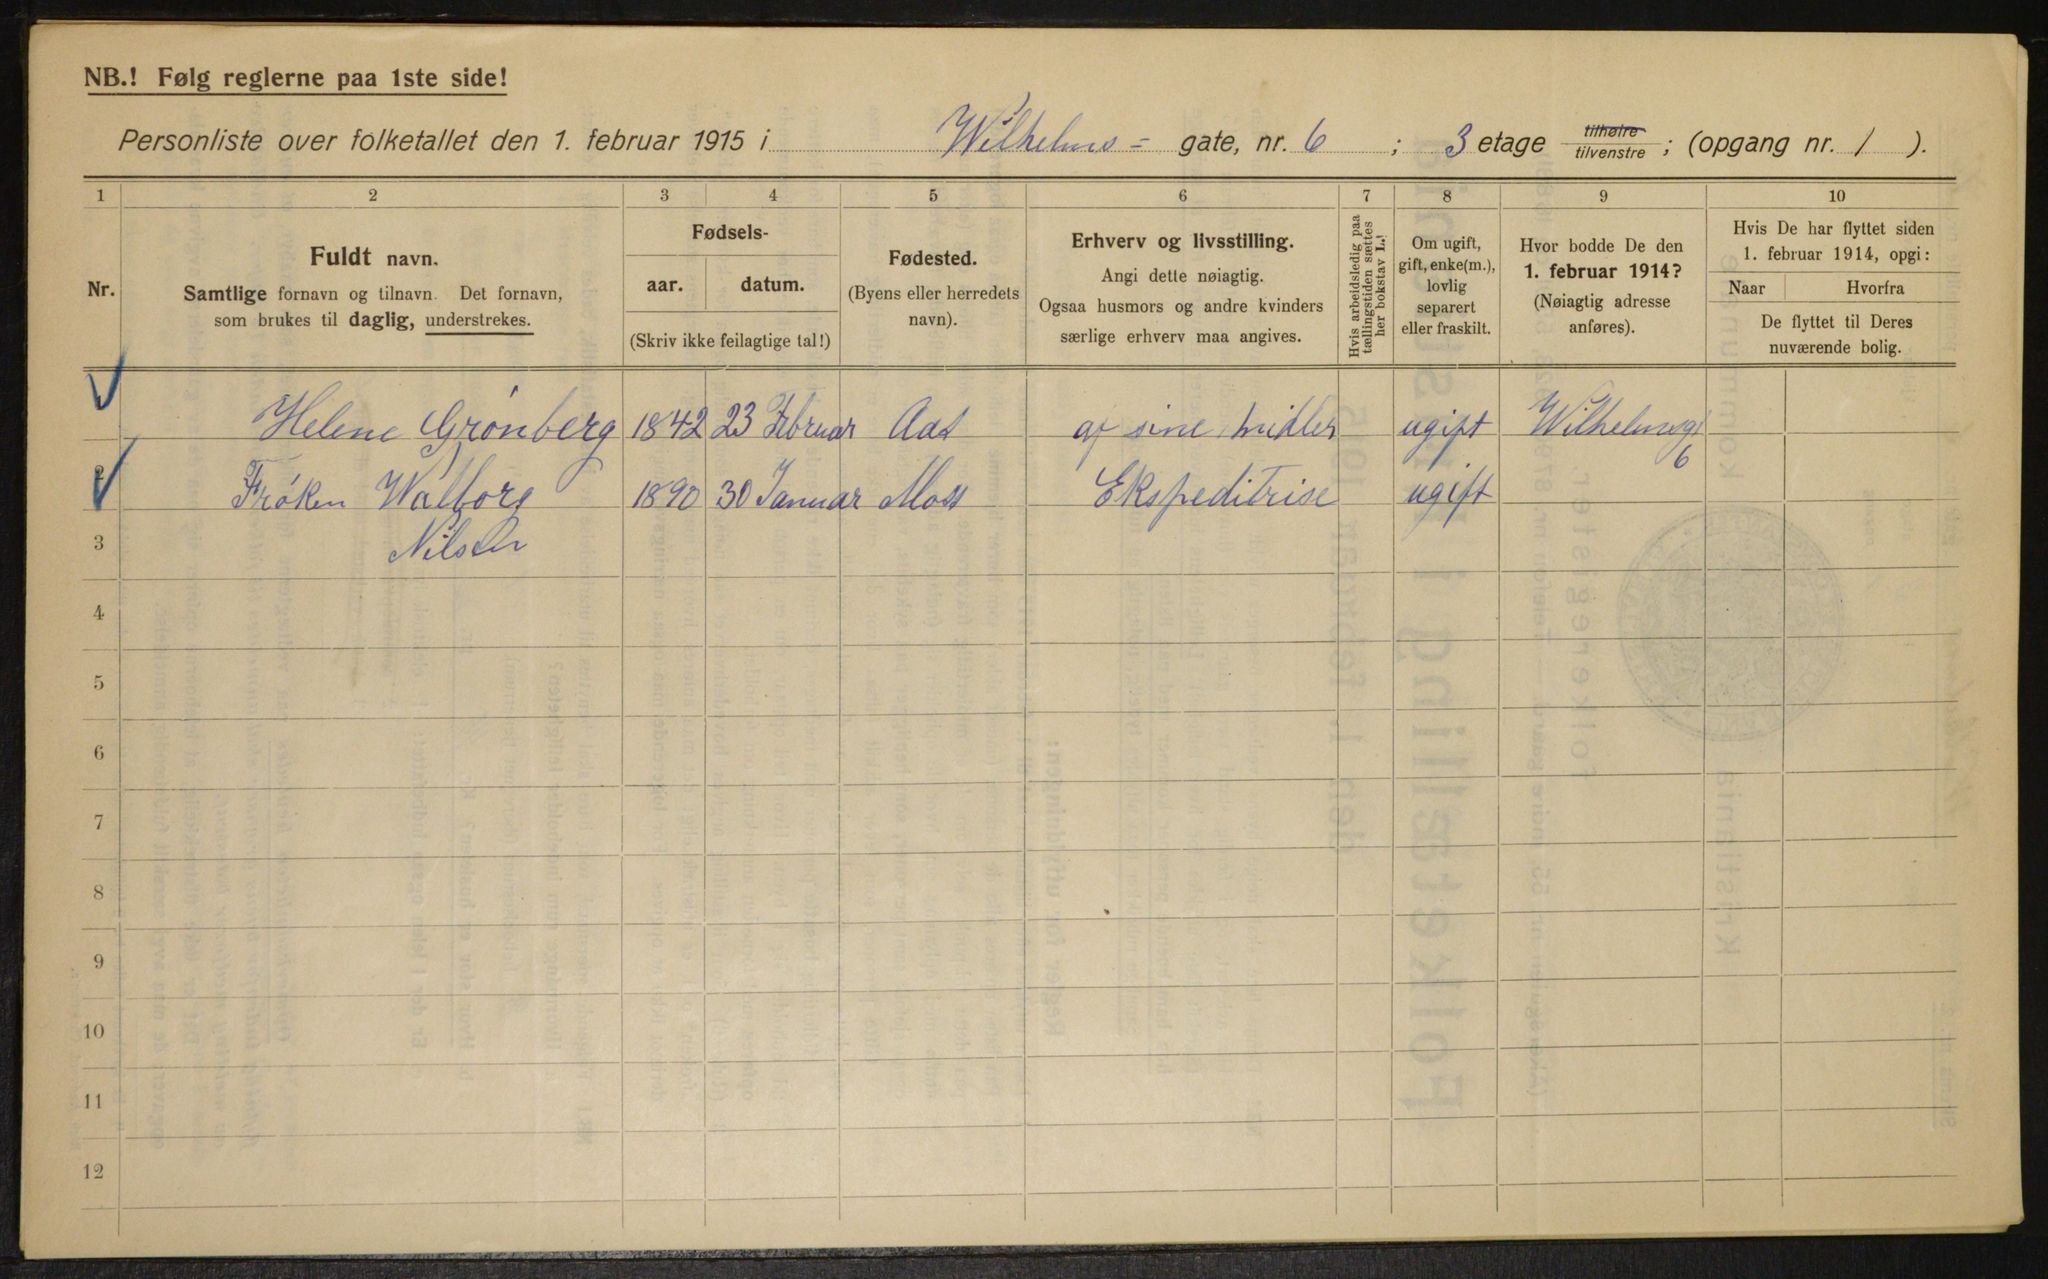 NB.! Følg reglerne paa 1ste side!
Personliste over folketallet den 1. februar 1915 i Wilhelms- gate, nr. 6 ; 3 etage tilhøire tilvenstre ; (opgang nr. 1 ).
1 2 3 4 5 6 7 8 9 10
Nr.
Fuldt navn.
Samtlige fornavn og tilnavn. Det fornavn,
som brukes til daglig, understrekes.
Fødsels-
aar. datum.
(Skriv ikke feilagtige tal!)
Fødested.
(Byens eller herredets
navn).
Erhverv og livsstilling.
Angi dette nøiagtig.
Ogsaa husmors og andre kvinders
særlige erhverv maa angives.
Hvis arbeidsledig paa
tællingstiden sættes
her bokstav L.!
Om ugift,
gift, enke(m.),
lovlig
separert
eller fraskilt.
Hvor bodde De den
1. februar 1914?
(Nøiagtig adresse
anføres).
Hvis De har flyttet siden
1. februar 1914, opgi:
Naar Hvorfra
De flyttet til Deres
nuværende bolig.
Helene Grønberg 1842 23 Februar Aas af sine midler ugift Wilhelmsg
6
Frøken Walborg 1890 30 Januar Moss Ekspeditrise ugift
3 Nilsen
4
5
6
7
8
9
10
11
12